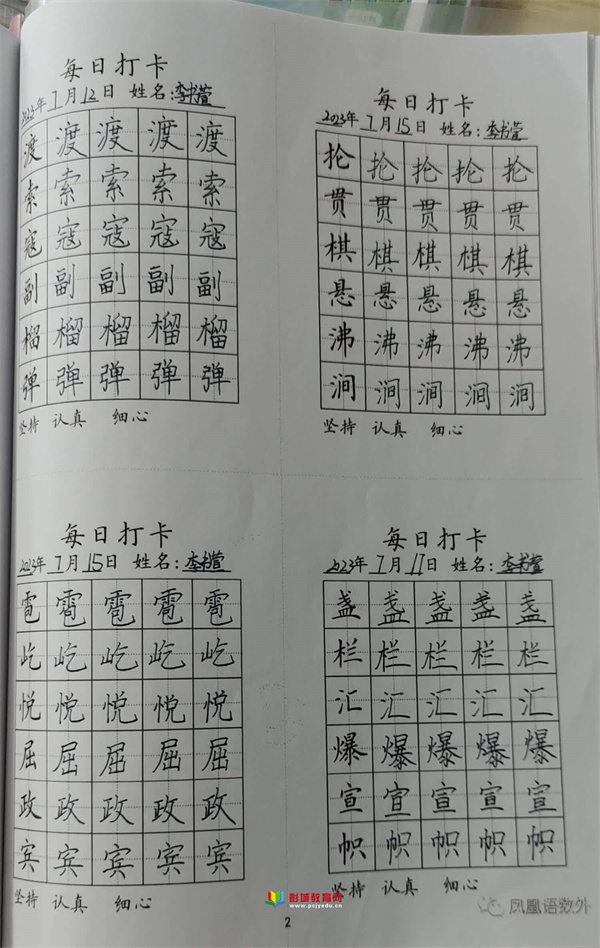 每日打卡
2023年 7月12日 姓名:李书萱
渡 渡 渡 渡 渡
索 索 索 索 索
寇 寇 寇 寇 寇
副 副 副 副 副
榴 榴 榴 榴 榴
弹 弹 弹 弹 弹
坚持 认真 细心
每日打卡
2023年 7月15日 姓名:李书萱
抡 抡 抡 抡 抡
贯 贯 贯 贯 贯
棋 棋 棋 棋 棋
悬 悬 悬 悬 悬
沸 沸 沸 沸 沸
涧 涧 涧 涧 涧
坚持 认真 细心
每日打卡
2023年 7月15日 姓名:李书萱
雹 雹 雹 雹 雹
屹 屹 屹 屹 屹
悦 悦 悦 悦 悦
屈 屈 屈 屈 屈
政 政 政 政 政
宾 宾 宾 宾 宾
坚持 认真 细心
每日打卡
2023年 7月17日 姓名:李书萱
盏 盏 盏 盏 盏
栏 栏 栏 栏 栏
汇 汇 汇 汇 汇
爆 爆 爆 爆 爆
宣 宣 宣 宣 宣
帜 帜 帜 帜 帜
坚持 认真 细心
彭城教育网
www.pcjyedu.cn
2
凤凰语数外